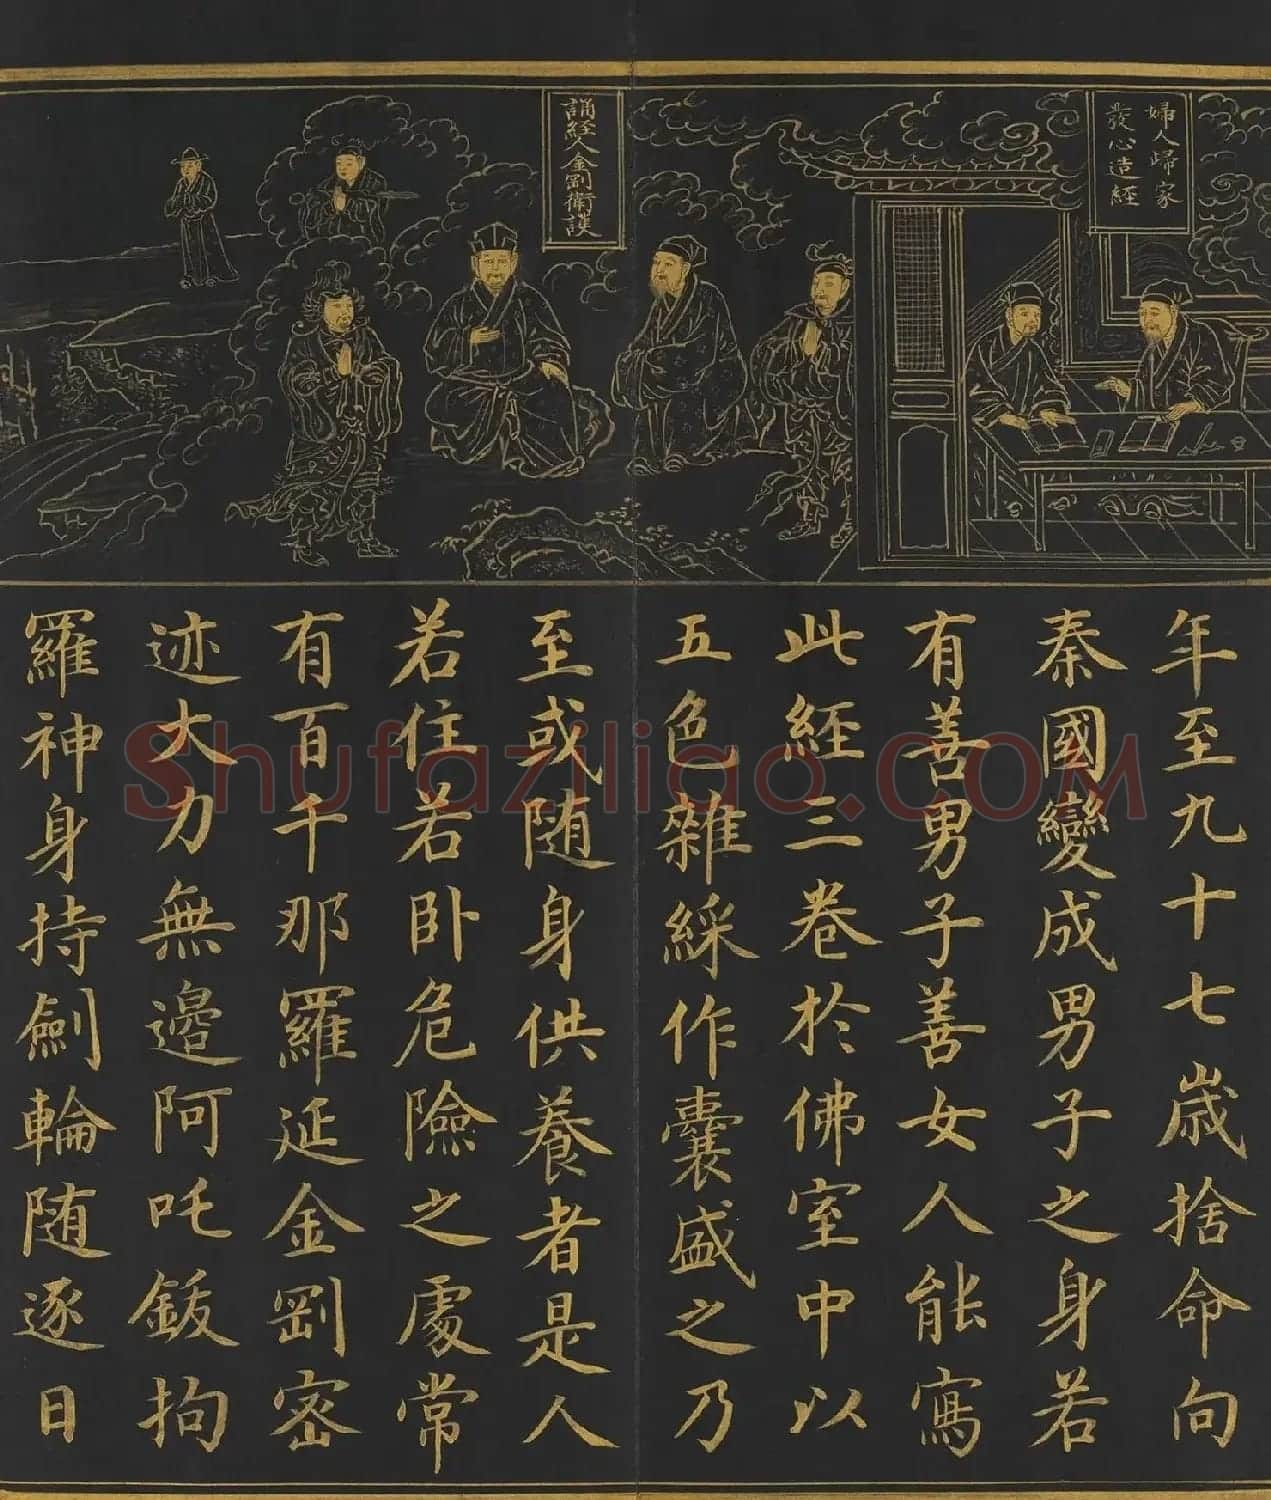 婦人歸家
發心造經
誦經人金剛衛護
年至九十七歲捨命向
秦國變成男子之身若
有善男子善女人能寫
此經三卷於佛室中以
五色雜綵作囊盛之乃
至或随身供養者是人
若住若卧危險之處常
有百千那羅延金剛密
迹大力無邊阿吒鈸拘
羅神身持劍輪随逐日
Shufaziliao.COM